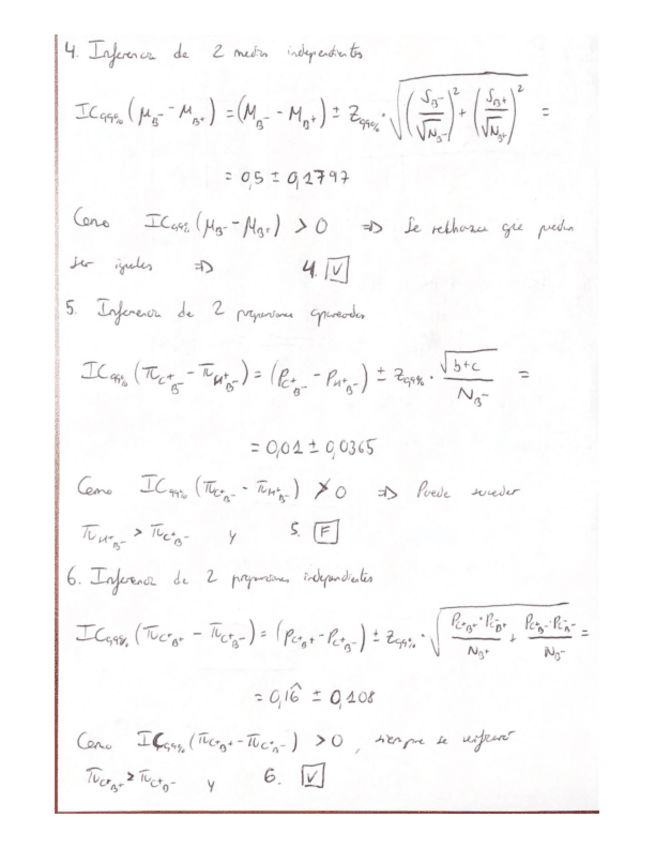 4. Inferencia de 2 medias independientes
IC₉₉% (μ_B⁻ - μ_B⁺) = (M_B⁻ - M_B⁺) ± Z₉₉% · √((S_B⁻/√N_B⁻)² + (S_B⁺/√N_B⁺)²) =
= 0,5 ± 0,1797
Como IC₉₉% (μ_B⁻ - μ_B⁺) > 0 ⇒ Se rechaza que puedan
ser iguales ⇒ 4. V
5. Inferencia de 2 proporciones apareadas
IC₉₉% (π_C⁺_B⁻ - π_H⁺_B⁻) = (p_C⁺_B⁻ - p_H⁺_B⁻) ± Z₉₉% · √(b+c) / N_B⁻ =
= 0,01 ± 0,0365
Como IC₉₉% (π_C⁺_B⁻ - π_H⁺_B⁻) ≯ 0 ⇒ Puede suceder
π_H⁺_B⁻ > π_C⁺_B⁻ y 5. F
6. Inferencia de 2 proporciones independientes
IC₉₉% (π_C⁺_B⁺ - π_C⁺_B⁻) = (p_C⁺_B⁺ - p_C⁺_B⁻) ± Z₉₉% · √(p_C⁺_B⁺ · p_C⁻_B⁺ / N_B⁺ + p_C⁺_B⁻ · p_C⁻_B⁻ / N_B⁻) =
= 0,16̂ ± 0,108
Como IC₉₉% (π_C⁺_B⁺ - π_C⁺_B⁻) > 0, siempre se verificará
π_C⁺_B⁺ > π_C⁺_B⁻ y 6. V